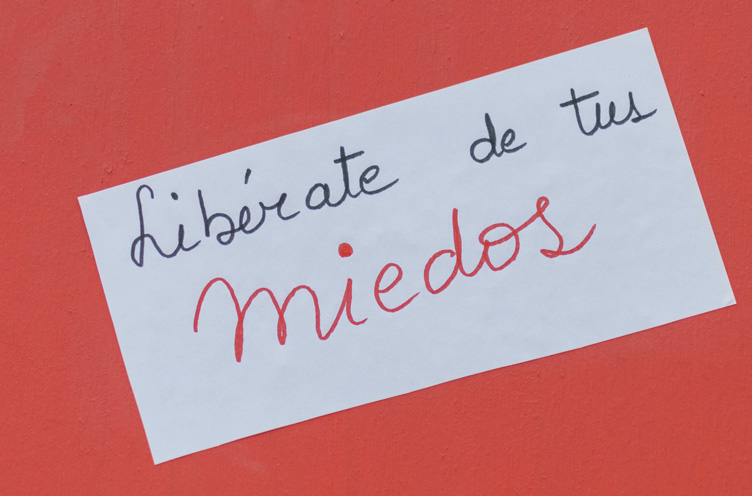 Libérate de tus
miedos